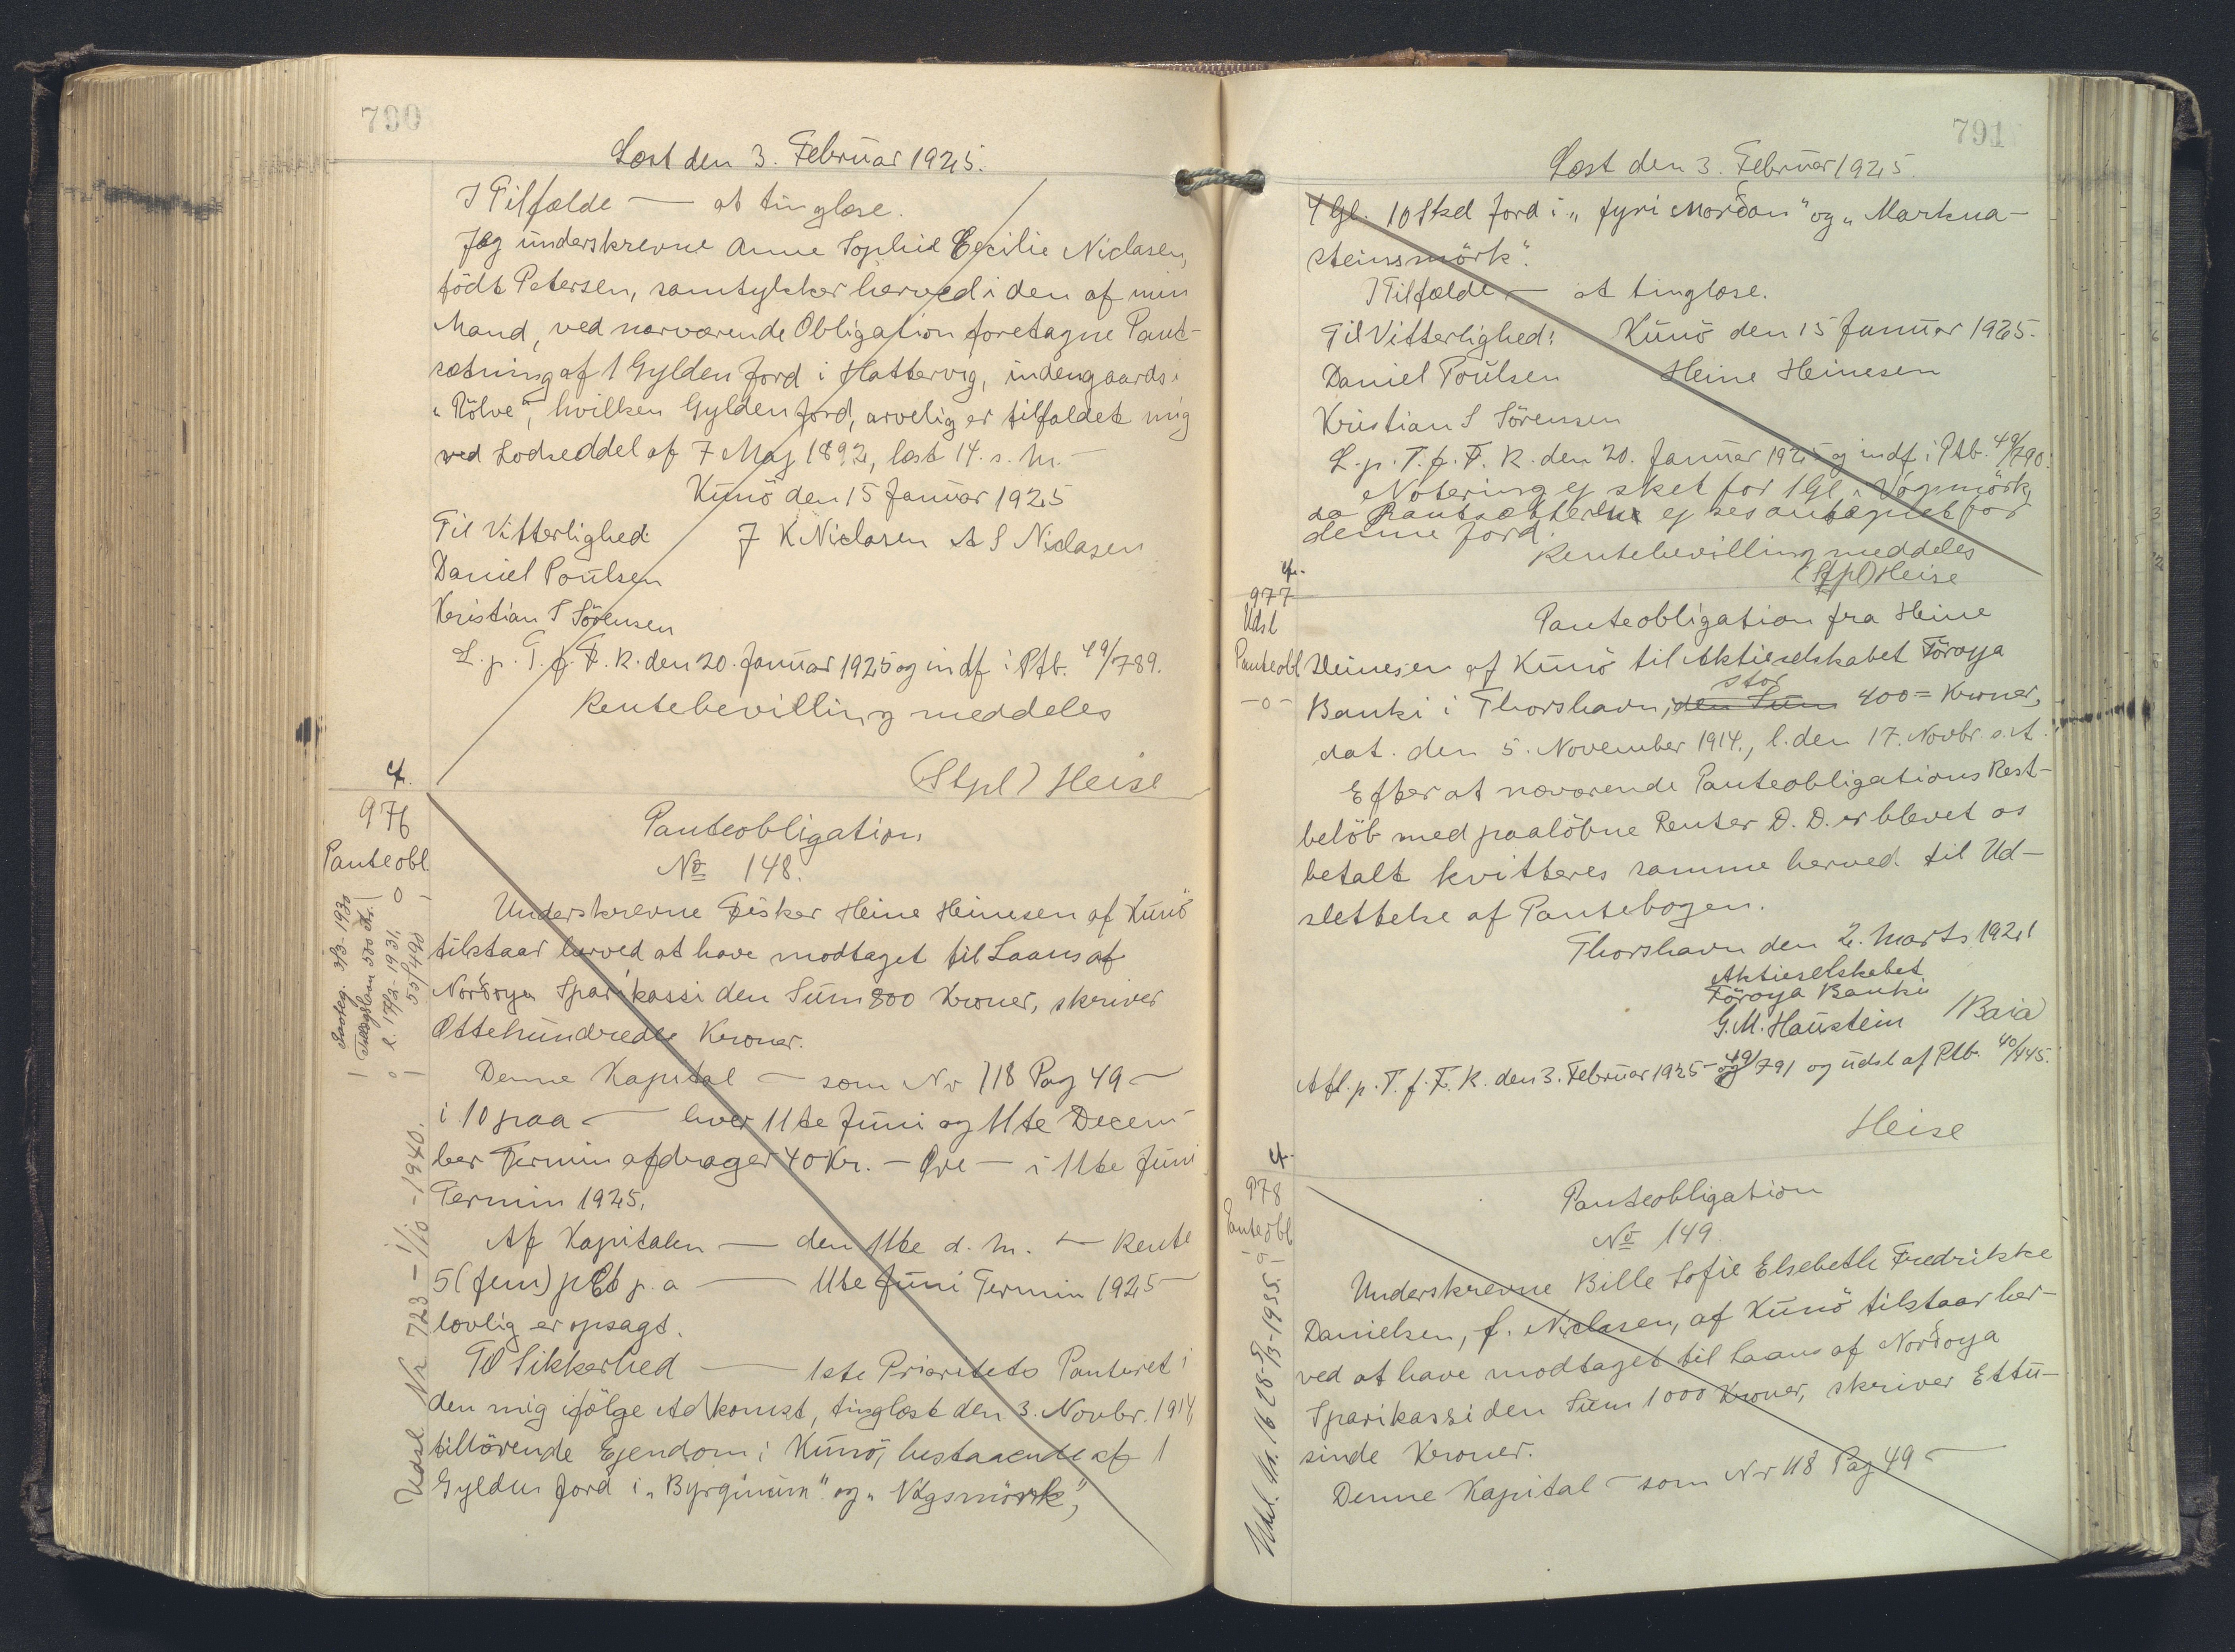 790
Læst den 3. Februar 1925.
I Tilfælde — at tinglæse.
Jeg underskrevne Anne Sophie Cecilie Niclasen,
födt Petersen, samtykker herved i den af min
Mand, ved nærværende Obligation foretagne Pant-
sætning af 1 Gylden Jord i Hattervig, indengaards i
"Rölve", hvilken Gylden Jord, arvelig er tilfaldet mig
ved Lodseddel af 7 Maj 1892, læst 14. s. M. —
Kunö den 15 Januar 1925
Til Vitterlighed: J K Niclasen A S Niclasen
Daniel Poulsen
Kristian S Sörensen
L. p. T. f. F. R. den 20. Januar 1925 og indf i Ptb. 49/789.
Rentebevilling meddeles
(Stpl) Heise
cf.
976
Panteobl
Panteobligation
No 148.
Underskrevne Fisker Heine Heinesen af Kunö
tilstaar herved at have modtaget til Laans af
Norðoya Sparikassi den Sum 800 Kroner, skriver
Ottehundrede Kroner.
Denne Kapital — som Nr 118 Pag 49 —
i 10 paa — hver 11te Juni og 11te Decem-
ber Termin afdrager 40 Kr. — Øre — i 11te Juni
Termin 1925.
Af Kapitalen — den 11te d. M. — Rente
5 (fem) pCt p. a — 11te Juni Termin 1925 —
lovlig er opsagt.
Til Sikkerhed — 1ste Prioritets Panteret i
den mig ifölge Adkomst, tinglæst den 3. Novbr. 1914,
tilhörende Ejendom i Kunö, bestaaende af 1
Gylden Jord i "Byrginum" og "Vágsmörk",
3/3-1930
Tillægslaan 500 Kr.
l. 17/2-1931.
55/490
Udsl Nr 723 - 1/10 - 1940.
791
Læst den 3. Februar 1925.
4 Gl. 10 Skd Jord i "fyri Morðan" og "Markna-
steinsmörk".
I Tilfælde — at tinglæse.
Til Vitterlighed: Kunö den 15 Januar 1925.
Daniel Poulsen Heine Heinesen
Kristian S Sörensen
L. p. T. f. F. R. den 20. Januar 1925 og indf i Ptb. 49/790.
Notering ej sket for 1 Gl i Vágsmörk,
da Pantsætteren ej ses antegnet for
denne Jord.
Rentebevilling meddeles
(Stpl) Heise
cf.
977
Udsl
Panteobl
-o-
Panteobligation fra Heine
Heinesen af Kunö til Aktieselskabet Föroya
Banki i Thorshavn, den Sum stor 400 = Kroner,
dat. den 5. November 1914, l. den 17. Novbr. s. A.
Efter at nærværende Panteobligations Rest-
belöb med paalöbne Renter D. D. er blevet os
betalt kvitteres samme herved til Ud-
slettelse af Pantebogen.
Thorshavn den 2. Marts 1921
Aktieselskabet
Föroya Banki
G. M. Haustein / Baia
Afl. p. T. f. F. R. den 3. Februar 1925 — 49/791 og udsl af Ptb. 40/445.
Heise
cf.
978
Panteobl
-o-
Panteobligation
No 149
Underskrevne Bille Sofie Elsebeth Fredrikke
Danielsen, f. Niclasen, af Kunö tilstaar her-
ved at have modtaget til Laans af Norðoya
Sparikassi den Sum 1000 Kroner, skriver Ettu-
sinde Kroner.
Denne Kapital — som Nr 118 Pag 49 —
Udsl. Nr. 1628-5/3-1955.